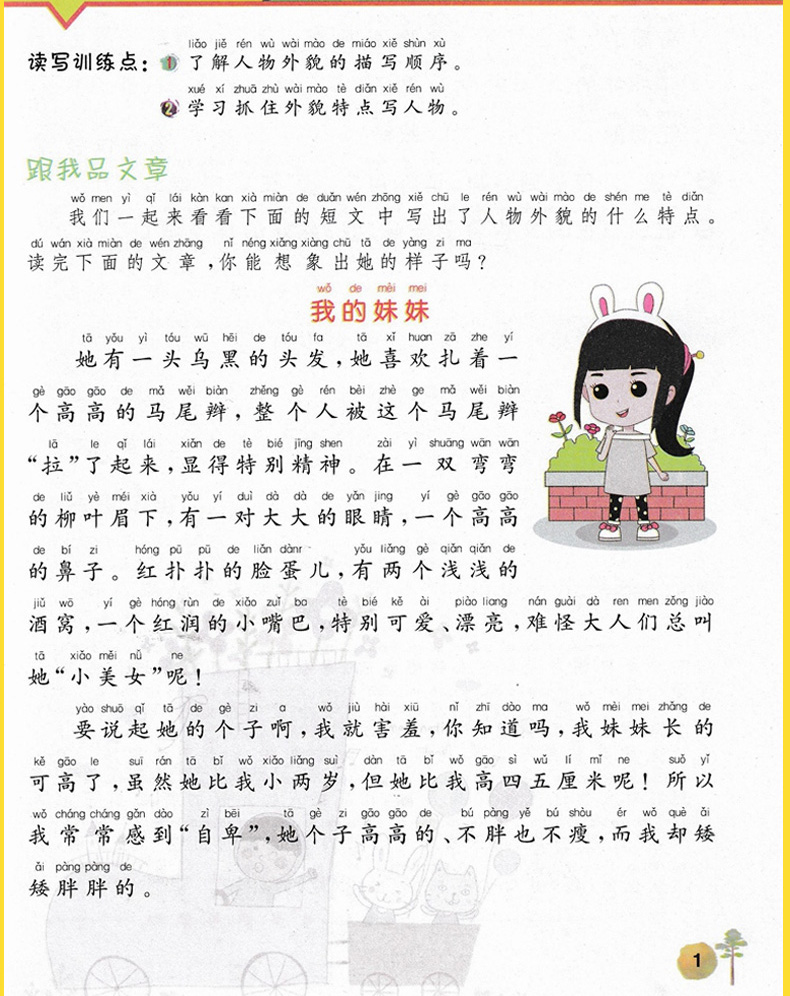 liǎo jiě rén wù wài mào de miáo xiě shùn xù
读写训练点：1 了解人物外貌的描写顺序。
xué xí zhuā zhù wài mào tè diǎn xiě rén wù
2 学习抓住外貌特点写人物。
跟我品文章
wǒ men yì qǐ lái kàn kan xià miàn de duǎn wén zhōng xiě chū le rén wù wài mào de shén me tè diǎn
我们一起来看看下面的短文中写出了人物外貌的什么特点。
dú wán xià miàn de wén zhāng nǐ néng xiǎng xiàng chū tā de yàng zi ma
读完下面的文章，你能想象出她的样子吗？
wǒ de mèi mei
我的妹妹
tā yǒu yì tóu wū hēi de tóu fa tā xǐ huan zā zhe yí
她有一头乌黑的头发，她喜欢扎着一
gè gāo gāo de mǎ wěi biàn zhěng gè rén bèi zhè ge mǎ wěi biàn
个高高的马尾辫，整个人被这个马尾辫
lā le qǐ lái xiǎn de tè bié jīng shen zài yì shuāng wān wān
“拉”了起来，显得特别精神。在一双弯弯
de liǔ yè méi xià yǒu yí duì dà dà de yǎn jing yí gè gāo gāo
的柳叶眉下，有一对大大的眼睛，一个高高
de bí zi hóng pū pū de liǎn dànr yǒu liǎng gè qiǎn qiǎn de
的鼻子。红扑扑的脸蛋儿，有两个浅浅的
jiǔ wō yí gè hóng rùn de xiǎo zuǐ ba tè bié kě ài piào liang nán guài dà ren men zǒng jiào
酒窝，一个红润的小嘴巴，特别可爱、漂亮，难怪大人们总叫
tā xiǎo měi nǚ ne
她“小美女”呢！
yào shuō qǐ tā de gè zi a wǒ jiù hài xiū nǐ zhī dào ma wǒ mèi mei zhǎng de
要说起她的个子啊，我就害羞，你知道吗，我妹妹长的
kě gāo le suī rán tā bǐ wǒ xiǎo liǎng suì dàn tā bǐ wǒ gāo sì wǔ lí mǐ ne suǒ yǐ
可高了，虽然她比我小两岁，但她比我高四五厘米呢！所以
wǒ cháng cháng gǎn dào zì bēi tā gè zi gāo gāo de bú pàng yě bú shòu ér wǒ què ǎi
我常常感到“自卑”，她个子高高的、不胖也不瘦，而我却矮
ǎi pàng pàng de
矮胖胖的。
1